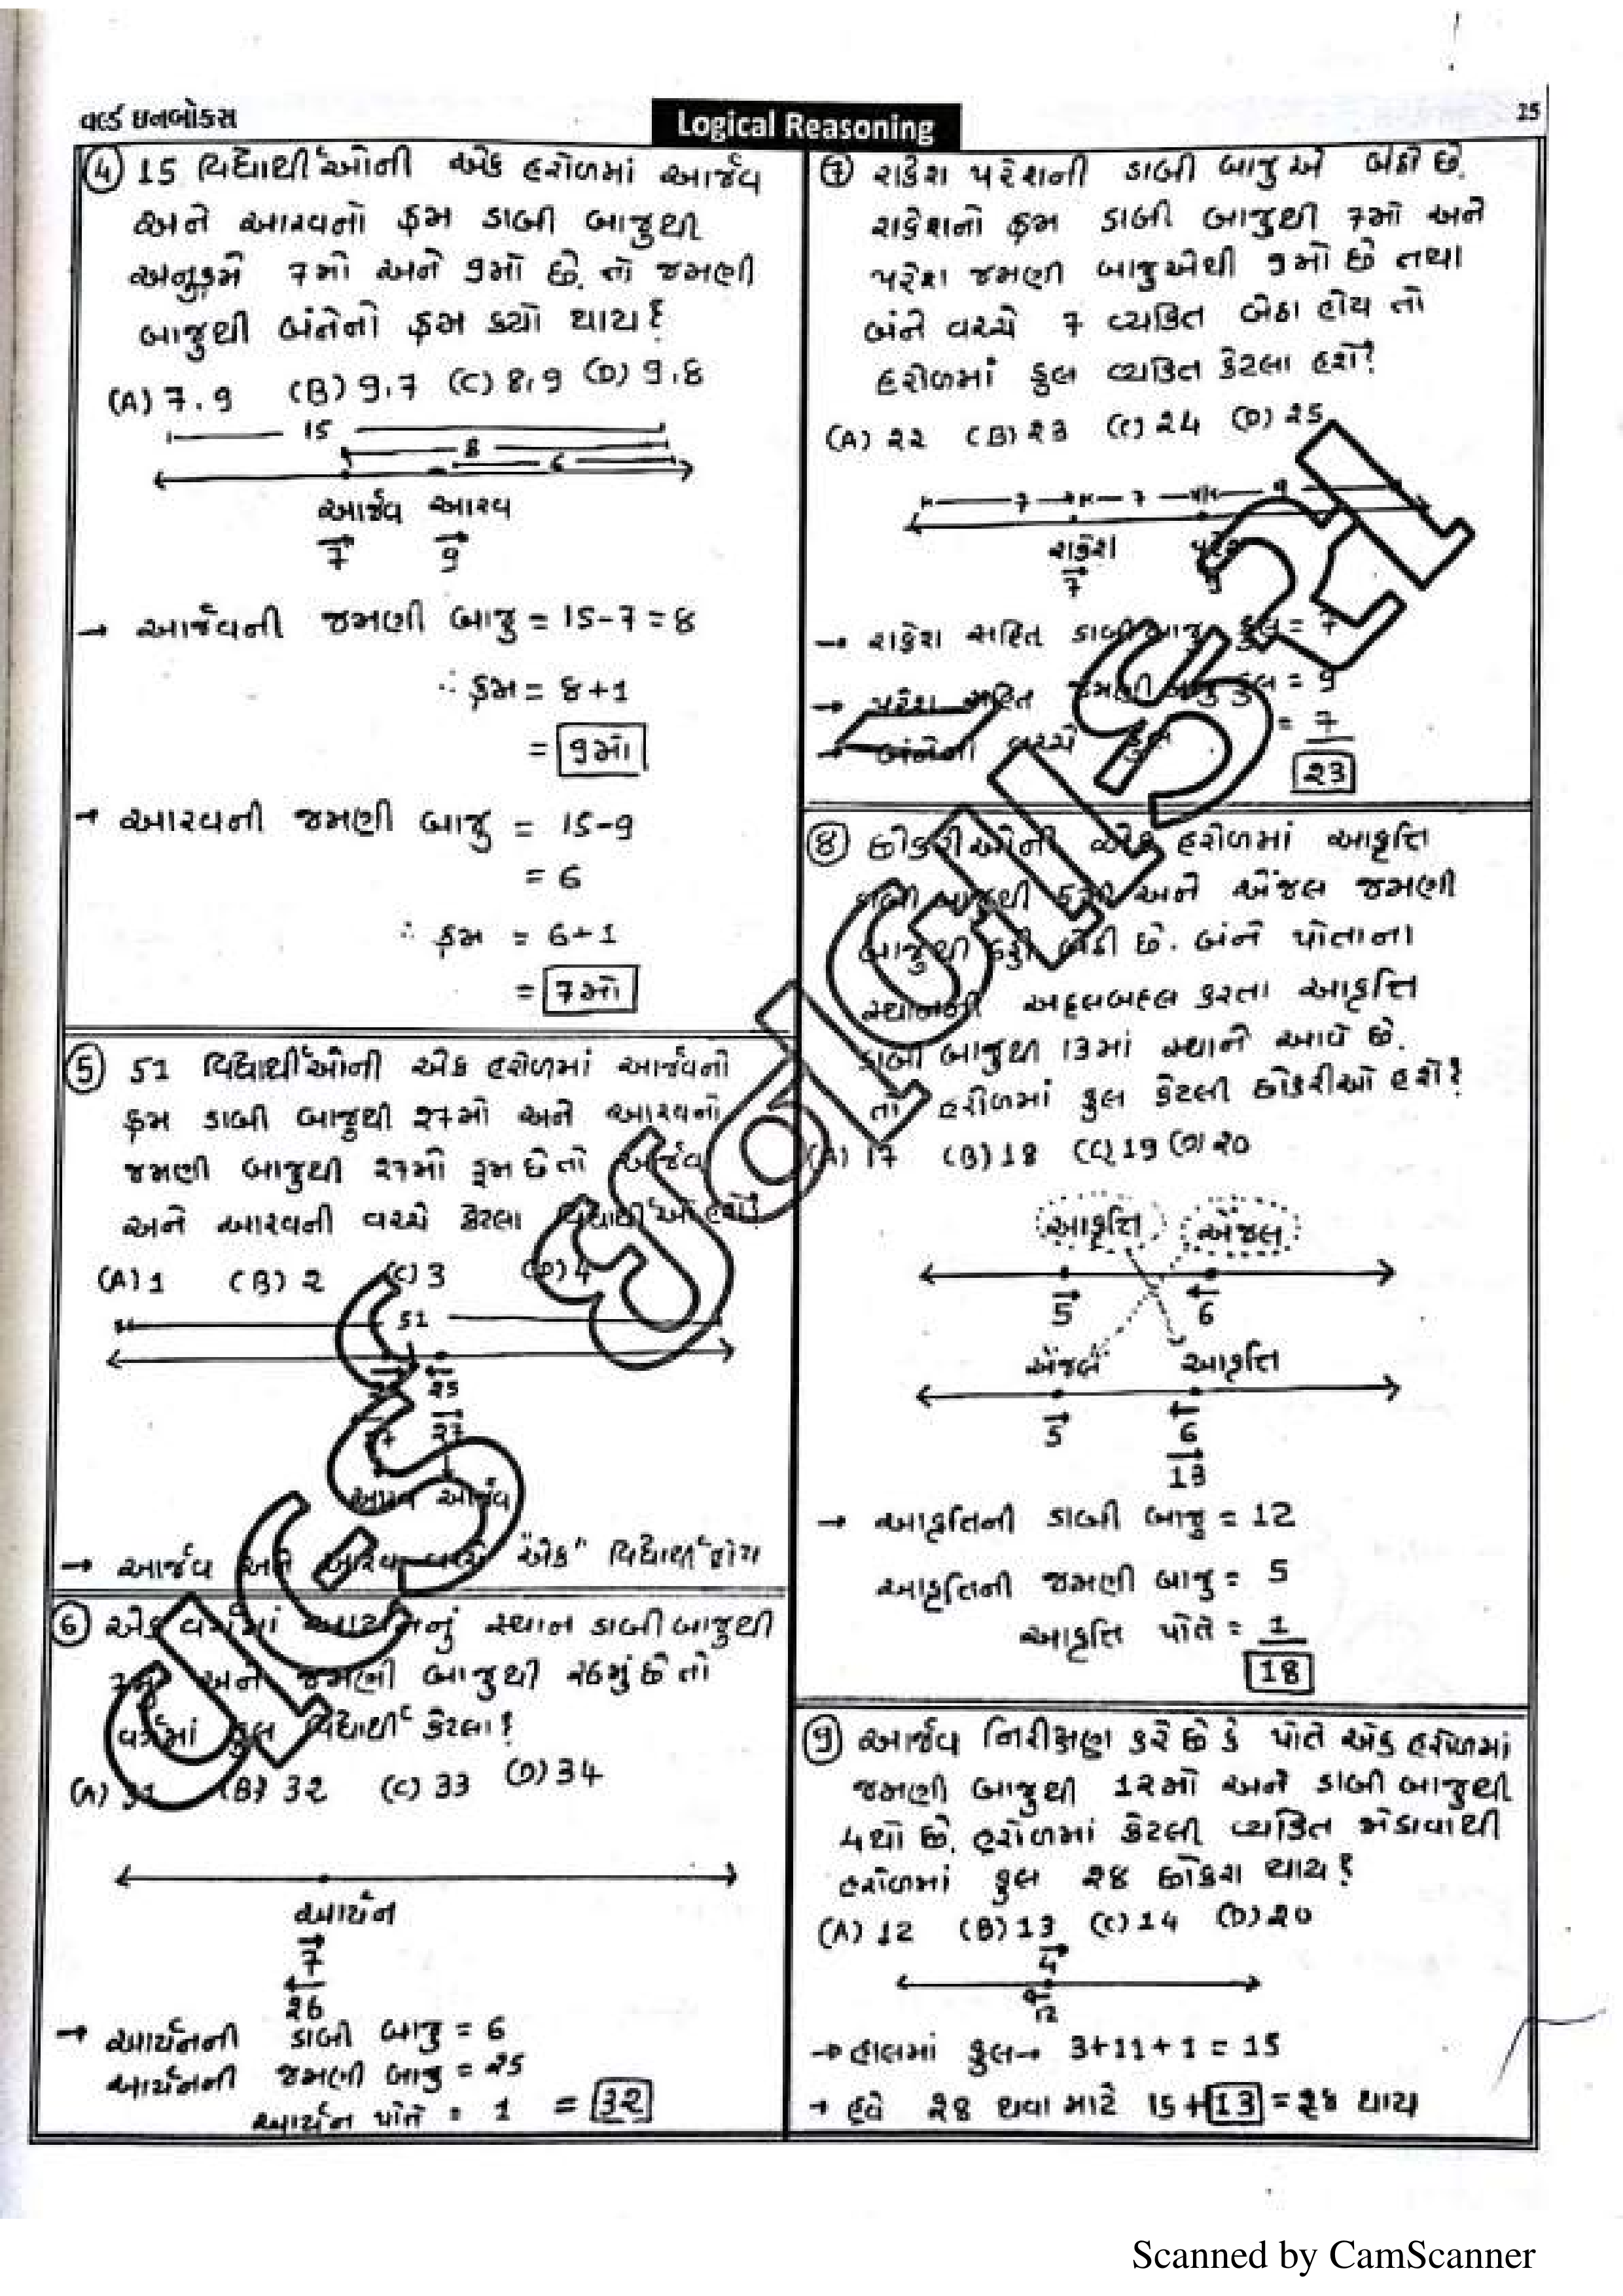 વર્લ્ડ ઇનબોક્સ
Logical Reasoning
25
④ 15 વિદ્યાર્થીઓની એક હરોળમાં આર્જવ
અને આરવનો ક્રમ ડાબી બાજુથી
અનુક્રમે 7મો અને 9મો છે. તો જમણી
બાજુથી બંનેનો ક્રમ કયો થાય?
(A) 7,9 (B) 9,7 (C) 8,9 (D) 9,8
15
8
6
આર્જવ આરવ
7 9
→ આર્જવની જમણી બાજુ = 15-7 = 8
∴ ક્રમ = 8+1
= 9મો
→ આરવની જમણી બાજુ = 15-9
= 6
∴ ક્રમ = 6+1
= 7મો
⑤ 51 વિદ્યાર્થીઓની એક હરોળમાં આર્જવનો
ક્રમ ડાબી બાજુથી ૨7મો અને આરવનો
જમણી બાજુથી ૨7મો ક્રમ છે તો આર્જવ
અને આરવની વચ્ચે કેટલા વિદ્યાર્થીઓ હશે?
(A) 1 (B) 2 (C) 3 (D) 4
51
૨5
૨7
આરવ આર્જવ
→ આર્જવ અને આરવ વચ્ચે "એક" વિદ્યાર્થી હોય
⑥ એક વર્ગમાં આર્યનનું સ્થાન ડાબી બાજુથી
7મું અને જમણી બાજુથી ૨6મું છે તો
વર્ગમાં કુલ વિદ્યાર્થી કેટલા?
(A) 31 (B) 32 (C) 33 (D) 34
આર્યન
7
૨6
→ આર્યનની ડાબી બાજુ = 6
આર્યનની જમણી બાજુ = ૨5
આર્યન પોતે = 1 = 3૨
⑦ રાકેશ પરેશની ડાબી બાજુએ બેઠો છે.
રાકેશનો ક્રમ ડાબી બાજુથી 7મો અને
પરેશ જમણી બાજુએથી 9મો છે તથા
બંને વચ્ચે 7 વ્યકિત બેઠા હોય તો
હરોળમાં કુલ વ્યકિત કેટલા હશે?
(A) ૨૨ (B) ૨3 (C) ૨4 (D) ૨5
7 7 9
રાકેશ પરેશ
7 9
→ રાકેશ સહિત ડાબી બાજુ કુલ = 7
→ પરેશ સહિત જમણી બાજુ કુલ = 9
→ બંનેની વચ્ચે કુલ = 7
૨3
⑧ છોકરીઓની એક હરોળમાં આકૃતિ
ડાબી બાજુથી 5મી અને એંજલ જમણી
બાજુથી 6ઠ્ઠી બેઠી છે. બંને પોતાના
સ્થાનની અદલબદલ કરતા આકૃતિ
ડાબી બાજુથી 13માં સ્થાને આવે છે.
તો હરોળમાં કુલ કેટલી છોકરીઓ હશે?
(A) 17 (B) 18 (C) 19 (D) ૨0
આકૃતિ એંજલ
5 6
એંજલ આકૃતિ
5 6
13
→ આકૃતિની ડાબી બાજુ = 12
આકૃતિની જમણી બાજુ = 5
આકૃતિ પોતે = 1
18
⑨ આર્જવ નિરીક્ષણ કરે છે કે પોતે એક હરોળમાં
જમણી બાજુથી 1૨મો અને ડાબી બાજુથી
4થો છે. હરોળમાં કેટલી વ્યકિત જોડાવાથી
હરોળમાં કુલ ૨8 છોકરા થાય?
(A) 12 (B) 13 (C) 14 (D) ૨0
4
12
→ હાલમાં કુલ → 3+11+1 = 15
→ હવે ૨8 થવા માટે 15+13 = ૨8 થાય
Scanned by CamScanner